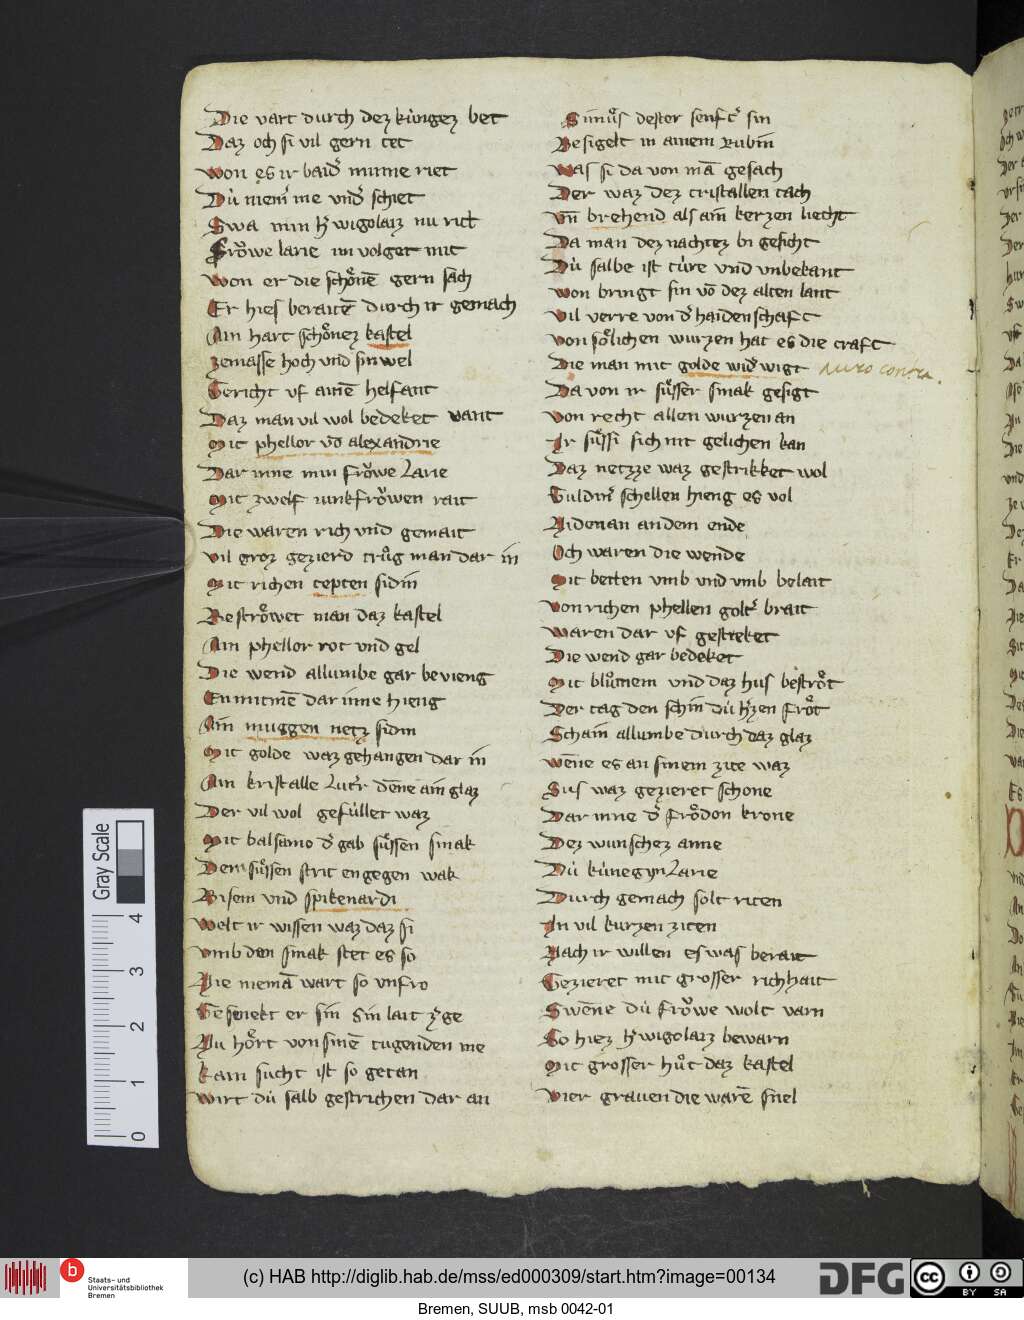 Die vart durch dez kúngez bet
Daz och si vil gern tet
won es ir baid͛ minne riet
Dú niem͛ me vnd͛ schiet
Swa min h̄͛ wigolaiz nu rit
Froͤwe larie im volget mit
won er die schoͤnē gern sach
Er hies beraitē durch ir gemach
Ain hart schoͤnez kastel
zemasse hoch vnd sinwel
Gericht vf ainē helfant
Daz man vil wol bedeket vant
Mit phellor vō alexandrie
Dar inne min froͤwe Larie
Mit zwelf iunkfroͤwen rait
Die waren rich vnd gemait
vil groz gezierd truͦg man dar in
Mit richen tepten sidin
Bestroͤwet man daz kastel
Ain phellor rot vnd gel
Die wend allumbe gar bevieng
Enmittnē dar inne hieng
Ain muggen netz sidin
Mit golde waz gehangen dar in
Ain kristalle Lut͛r dēne ain glaz
Der vil wol gefúllet waz
Mit balsamo d͛ gab suͤssen smak
Dem suͤssen strit engegen wak
Bisem vnd spikenardi
Welt ir wissen waz daz si
vmb den smak stet es so
Nie niemā wart so vnfro
Geschmekt er sin Sin lait z͛ge
Nu hoͤrt von sinē tugenden me
Kain sucht ist so getan
Wirt dú salb gestrichen dar an
Si muͤs dester senft͛ sin
Besigelt in ainem Rubin
was si da von mā gesach
Der waz dez cristallen tach
vn̄ brehend als ain kerzen liecht
Da man dez nachtez bi gesicht
Dú salbe ist túre vnd vnbekant
won bringt sin vō dez alten lant
vil verre von d͛ haidenschaft
von soͤlichen wurzen hat es die craft
Die man mit golde wid͛ wigt auro contra.
Da von ir suͤsser smak gesigt
von recht allen wurzen an
Ir suͤssi sich nit gelichen kan
Daz netzze waz gestrikket wol
Guldin͛ schellen hieng es vol
Nidenan an dem ende
Och waren die wende
Mit betten vmb vnd vmb belait
von richen phellen golt͛ brait
waren dar vf gestreket
Die wend gar bedeket
Mit bluͦmem vnd daz hus bestroͤt
Der tag den schin dú h̄͛zen froͤt
Schain allumbe durch daz glaz
wēne es an sinem zite waz
Sus waz gezieret schone
Dar inne d͛ froͤdon krone
Dez wunschez anne
Dú kúnegyn Larie
Durch gemach solt riten
In vil kurzen ziten
Nach ir willen es was berait
Gezieret mit grosser richhait
Swēne dú froͤwe wolt varn
So hiez h̄͛ wigolaiz bewarn
Mit grosser huͦt daz kastel
Vier grauen die warē snel
Gray Scale
4
3
2
1
0
b
Staats- und
Universitätsbibliothek
Bremen
(c) HAB http://diglib.hab.de/mss/ed000309/start.htm?image=00134
DFG
cc
BY SA
Bremen, SUUB, msb 0042-01